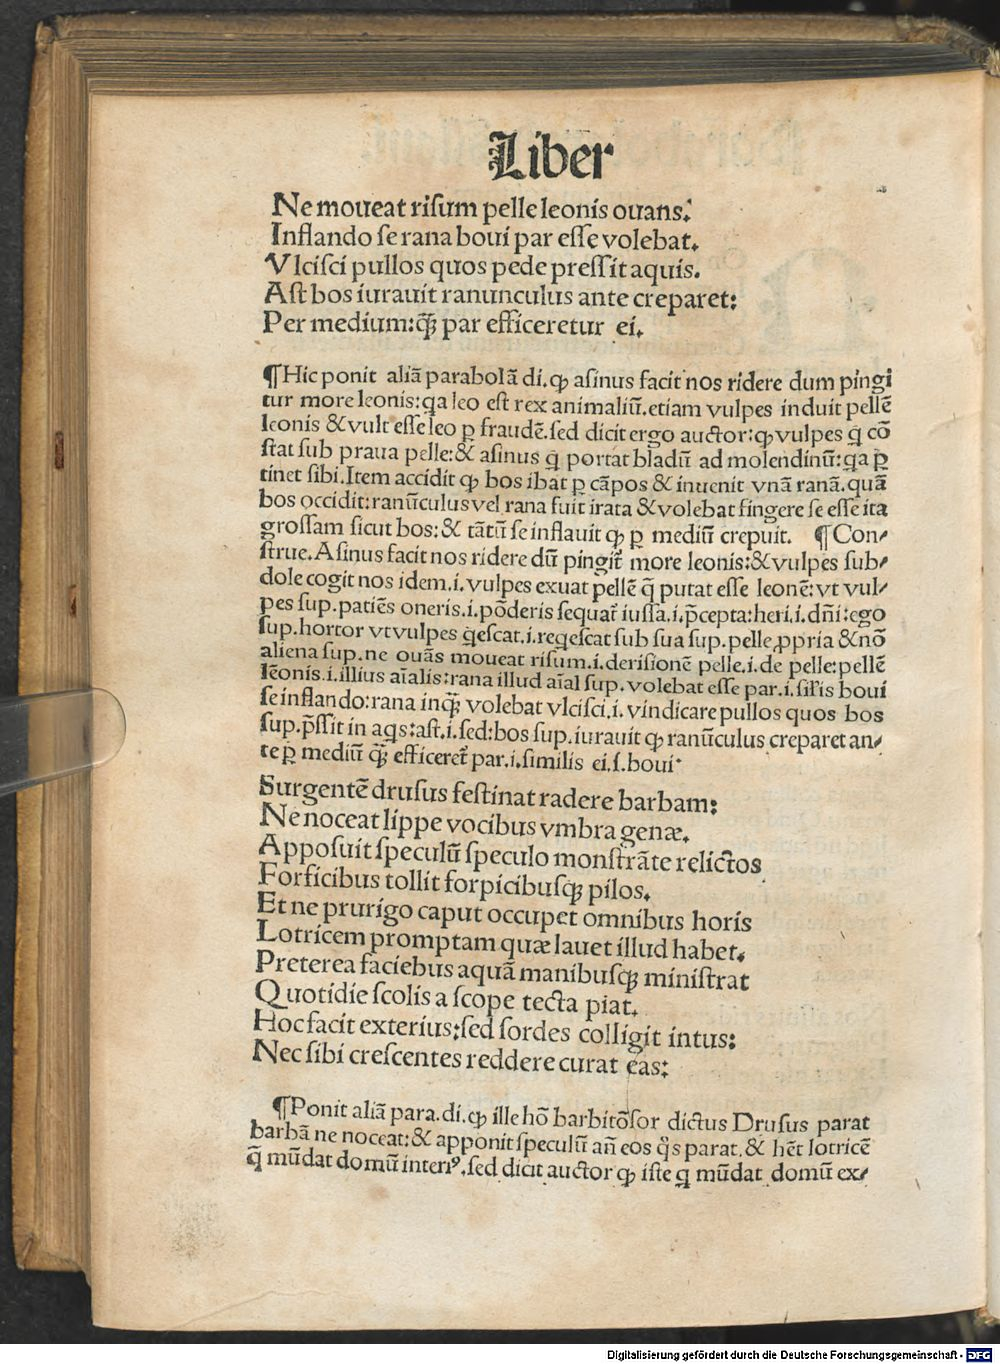 Liber
Ne moueat risum pelle leonis ouans.
Inflando se rana boui par esse volebat.
Vlcisci pullos quos pede pressit aquis.
Ast bos iurauit ranunculus ante creparet:
Per medium:qꝫ par efficeretur ei.
¶Hic ponit aliā parabolā di.ꝙ asinus facit nos ridere dum pingi
tur more leonis:qa leo est rex animaliū.etiam vulpes induit pellē
leonis &vult esse leo ꝑ fraudē.sed dicit ergo auctor:ꝙ vulpes q̄ cō
stat sub praua pelle:& asinus q̄ portat bladū ad molendinū:qa ꝑ
tinet sibi.Item accidit ꝙ bos ibat ꝑ cāpos & inuenit vnā ranā.quā
bos occidit:ranūculus vel rana fuit irata &volebat fingere se esse ita
grossam sicut bos:& tātū se inflauit ꝙ ꝑ mediū crepuit. ¶Con⸗
strue.Asinus facit nos ridere dū pingit̄ more leonis:&vulpes sub⸗
dole cogit nos idem.i.vulpes exuat pellē q̄ putat esse leonē:vt vul⸗
pes sup.patiēs oneris.i.pōderis sequat̄ iussa.i.p̄cepta:heri.i.dn̄i:ego
sup.hortor vt vulpes q̄escat.i.reqescat sub sua sup.pelle ꝓpria &nō
aliena sup.ne ouās moueat risum.i.derisionē pelle.i.de pelle:pellē
leōnis.i.illius aīalis:rana illud aīal sup.volebat esse par.i.sil̄is boui
se inflando:rana inqꝫ volebat vlcisci.i.vindicare pullos quos bos
sup.p̄ssit in aqs:ast.i.sed:bos sup.iurauit ꝙ ranūculus creparet an⸗
te ꝑ mediū qꝫ efficeret̄ par.i.similis ei.s.boui.
Surgentē drusus festinat radere barbam:
Ne noceat lippe vocibus vmbra genæ.
Apposuit speculū speculo monstrāte relictos
Forficibus tollit forpicibusqꝫ pilos.
Et ne prurigo caput occupet omnibus horis
Lotricem promptam quæ lauet illud habet.
Preterea faciebus aquā manibusqꝫ ministrat
Quotidie scolis a scope tecta piat.
Hoc facit exterius:sed sordes colligit intus:
Nec sibi crescentes reddere curat eas:
¶Ponit aliā para.di.ꝙ ille hō barbitōsor dictus Drusus parat
barbā ne noceat:& apponit speculū an̄ eos q̄s parat.& hēt lotricē
q̄ mūdat domū interiꝰ.sed dicit auctor ꝙ iste q mūdat domū ex⸗
Digitalisierung gefördert durch die Deutsche Forschungsgemeinschaft - DFG